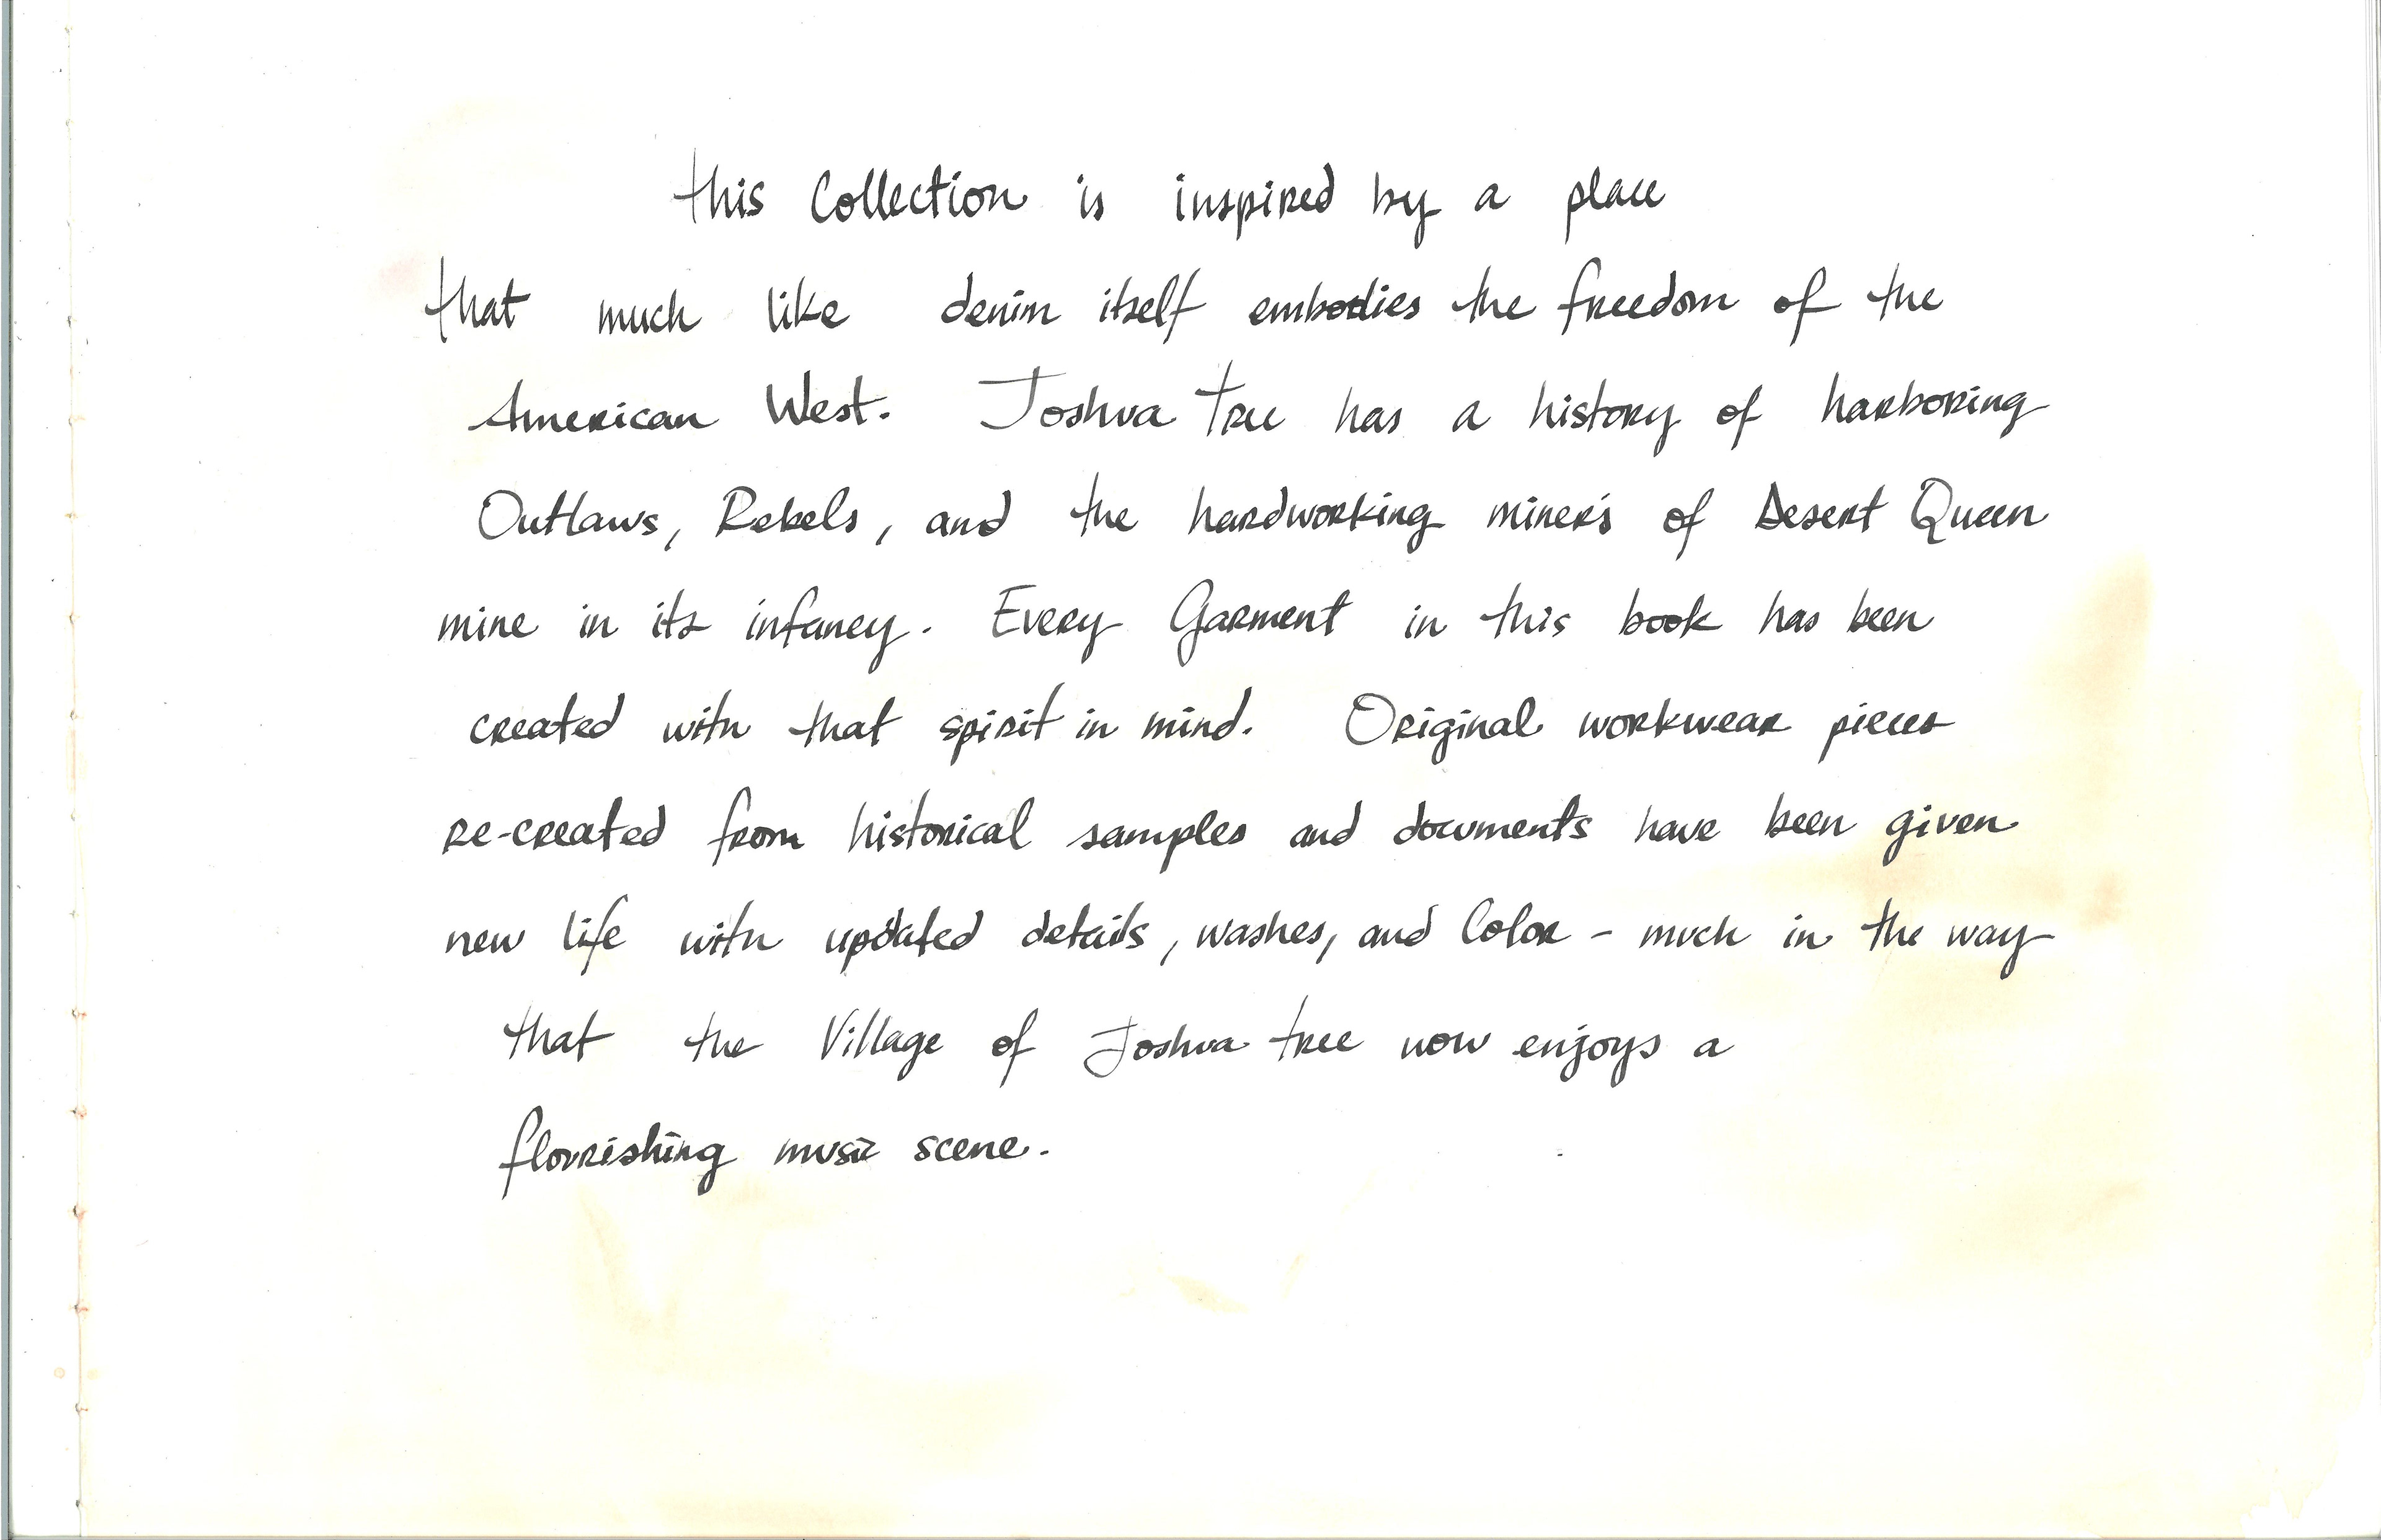 this Collection is inspired by a place
that much like denim itself embodies the freedom of the
American West. Joshua Tree has a history of harboring
Outlaws, Rebels, and the hardworking miner's of Desert Queen
mine in its infancy. Every Garment in this book has been
created with that spirit in mind. Original workwear pieces
re-created from historical samples and documents have been given
new life with updated details, washes, and Color - much in the way
that the Village of Joshua tree now enjoys a
flourishing music scene.